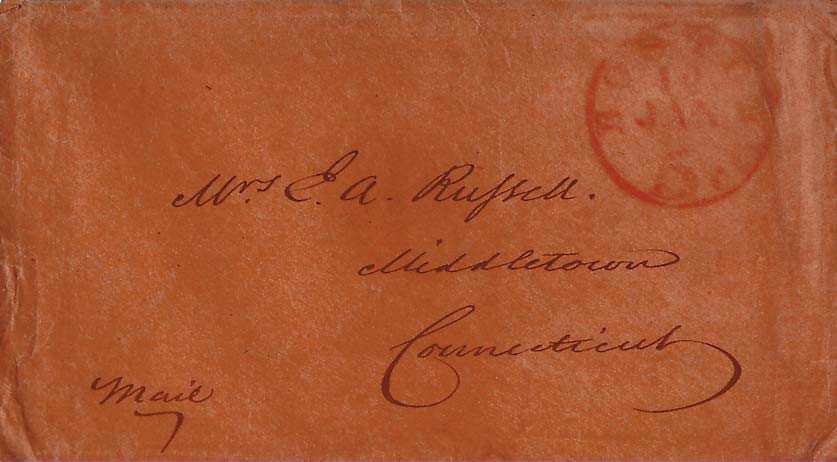 Mrs E. A. Russell.
Middletown
Connecticut
Mail